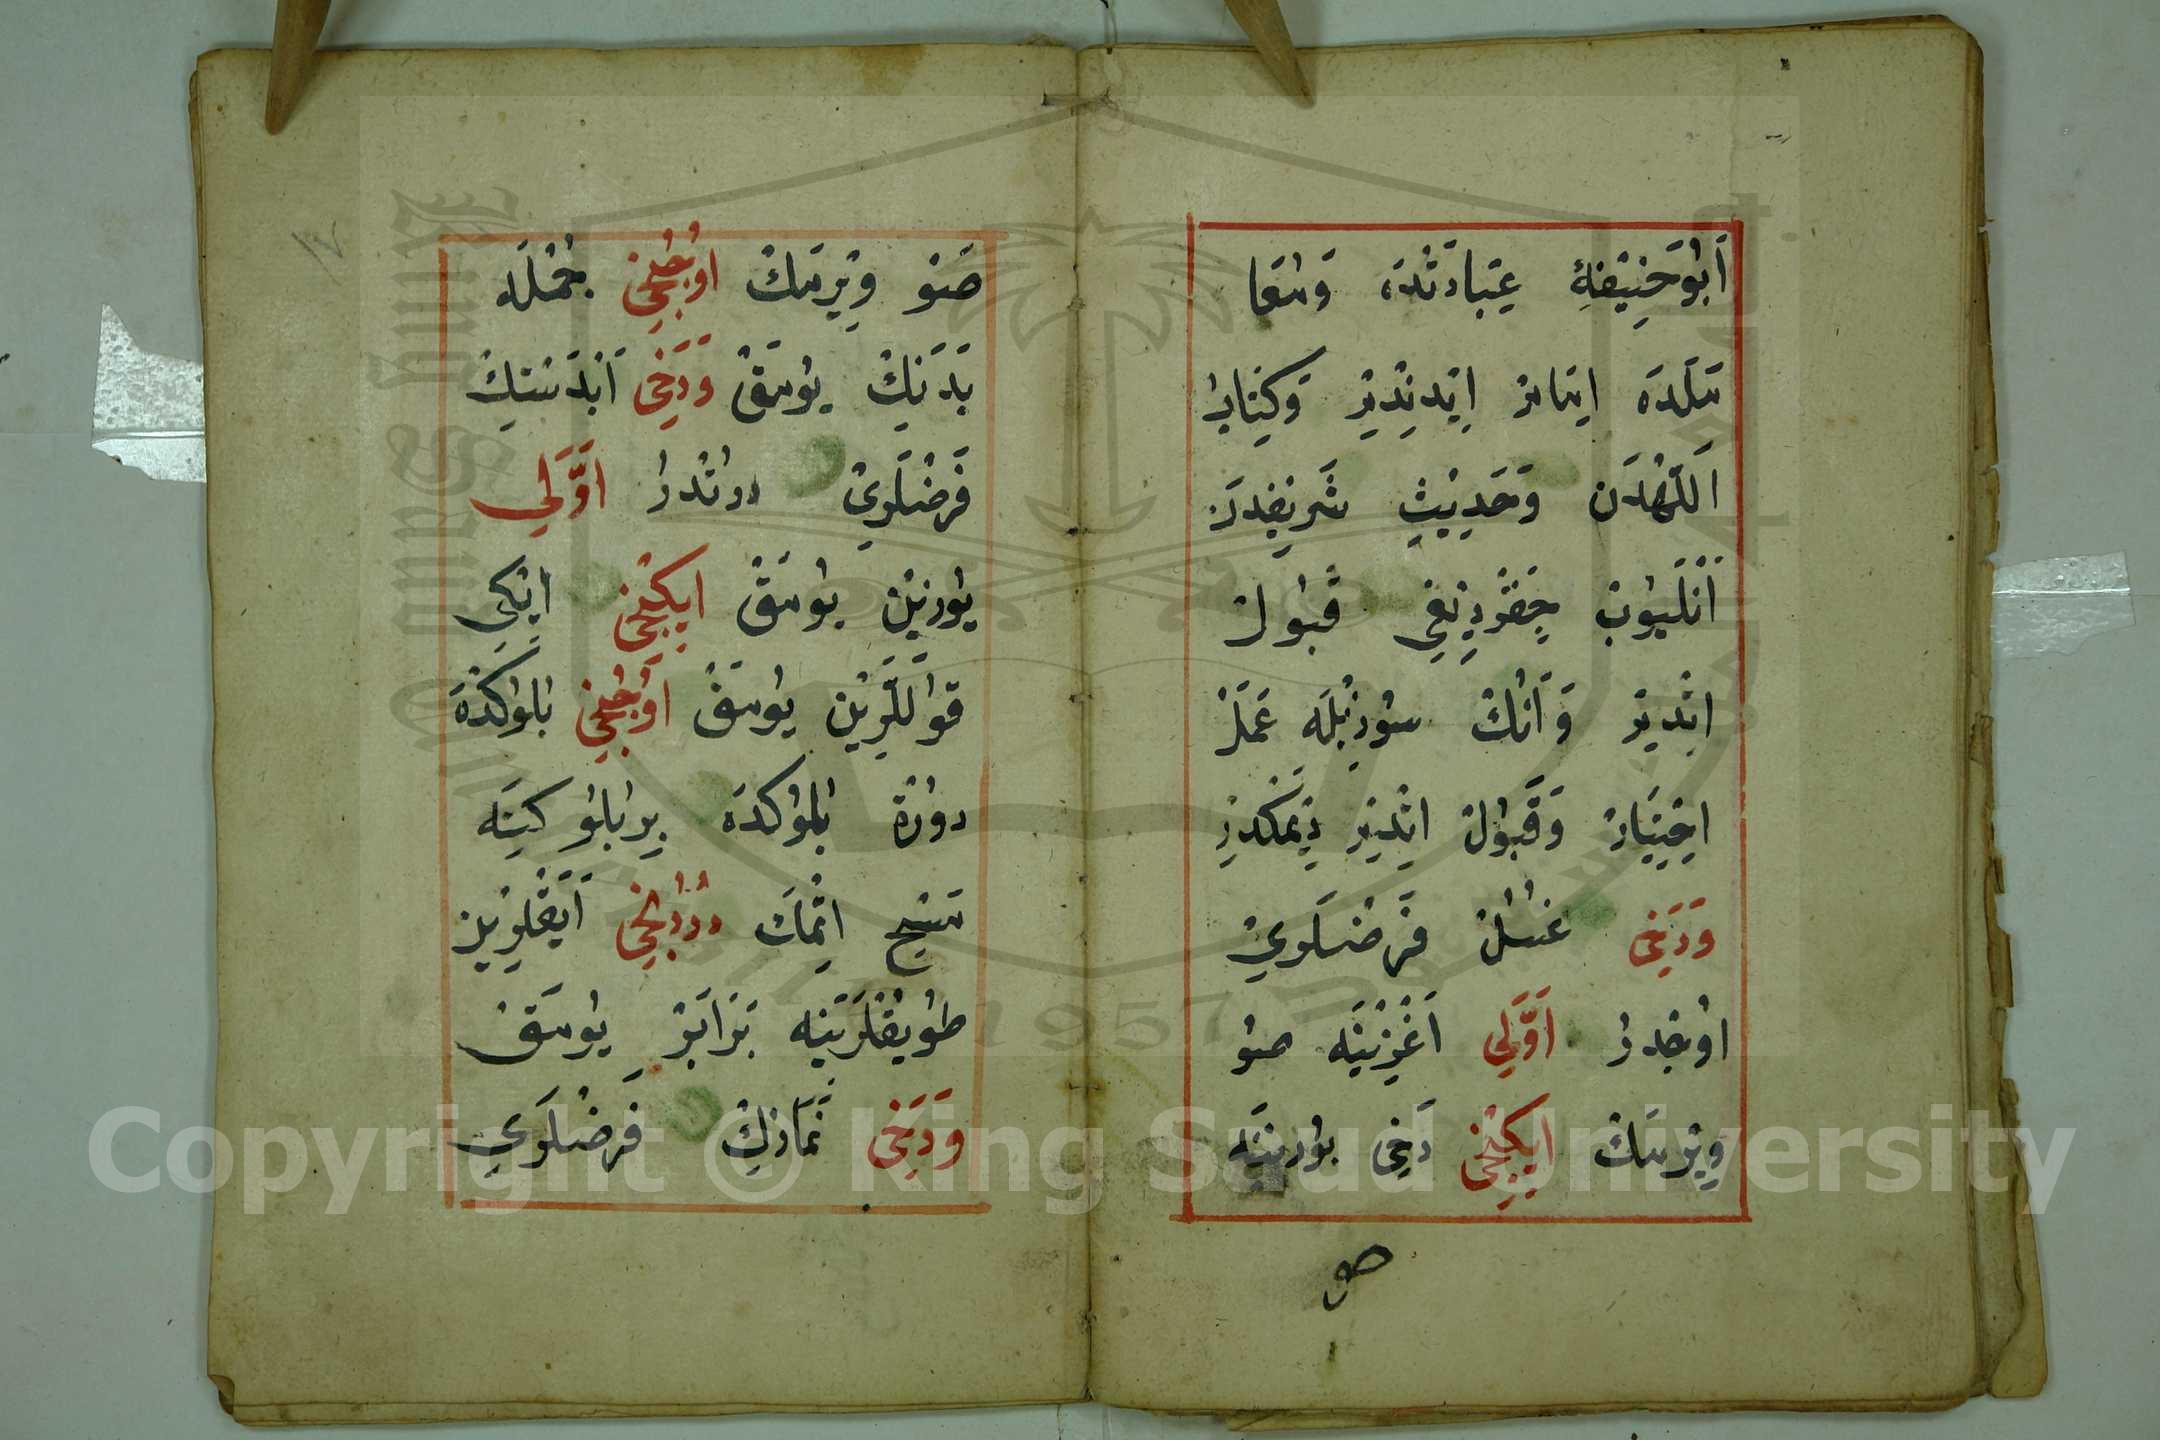 اَبُوحَنِيفَهْ عِبَادَتْدَه وَسَقَا
سَلَدَه اِيمَامْ اِيدِنْدِيرْ وَكِتَابْ
اَللّٰهْدَن وَحَدِيثِ شَرِيفْدَنْ
اَنْلَيُوبْ چِقَرْدِيغِي قَبُولْ
اِتْدِيرْ وَاَنُكْ سُوزِيْلَه عَمَلْ
اِخْتِيَارْ وَقَبُولْ اِتْدِيرْ دِيمَكْدِرْ
وَدَخِي غُسُلْ فَرْضْلَرِي
اُوچْدُرْ اَوَّلِي اَغْزِينَه صُو
وِيرْمَكْ اِيكِنْجِي دَخِي بُورْنِينَه
صو
صُو وِيرْمَكْ اُوچُنْجِي جُمْلَه
بَدَنِكْ يُومَقْ وَدَخِي اَبْدَسْتِكْ
فَرْضْلَرِي دُورْتْدُرْ اَوَّلِي
يُوزِنْ يُومَقْ اِيكِنْجِي اِيكِي
قُوللَّرِينْ يُومَقْ اُوچُنْجِي بَاشُوكْدَه
دُورْتْ بُلُوكْدَه بِرْ بُلُوكِينَه
مَسْحْ اِتْمَكْ دُورْدُنْجِي اَيَقْلَرِينْ
طُوپُقْلَرِينَه بَرَابَرْ يُومَقْ
وَدَخِي نَمَازِكْ فَرْضْلَرِي
١٧
King Saud University
1957
Copyright © King Saud University